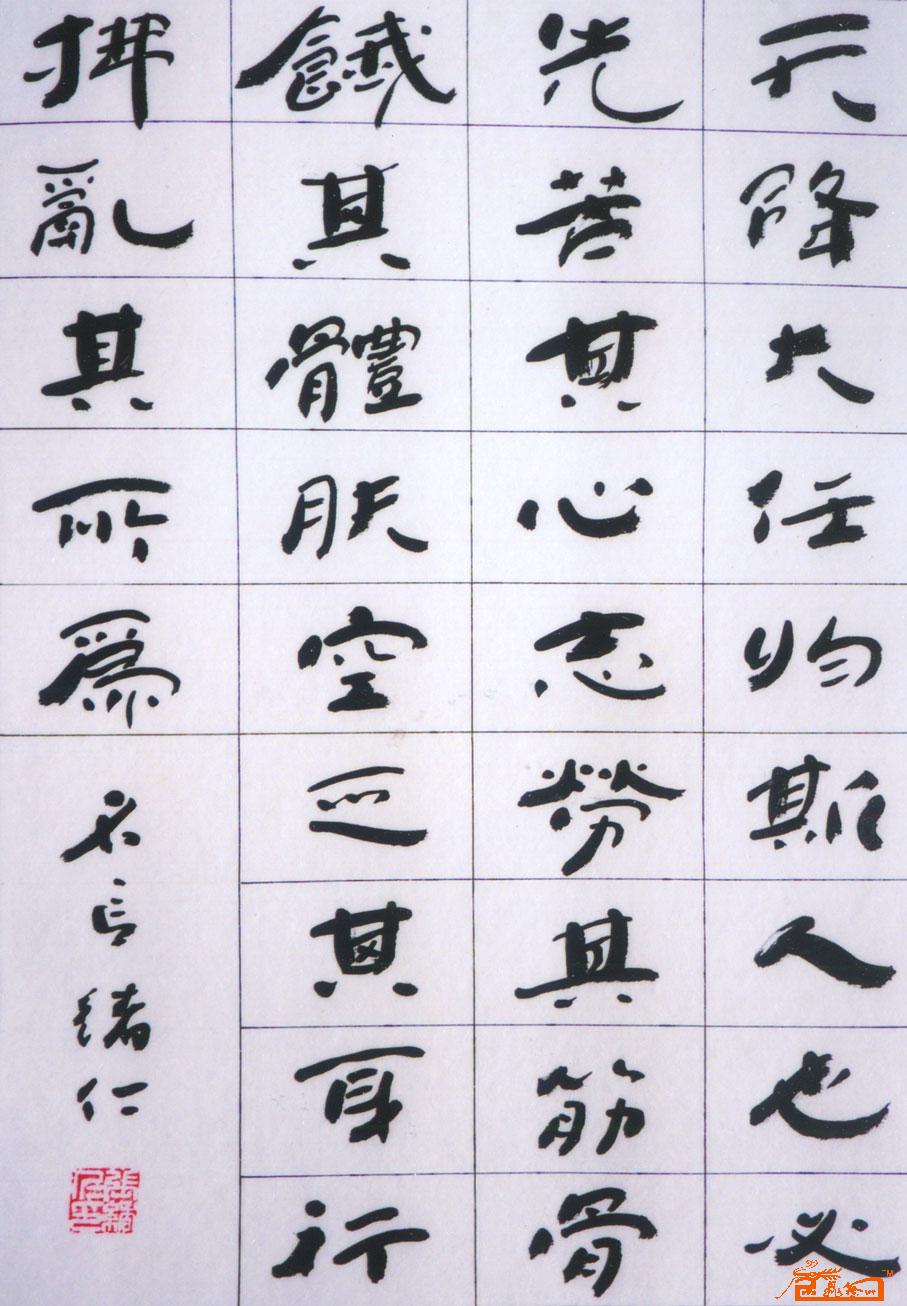 天降大任於斯人也必
先苦其心志勞其筋骨
餓其體肤空乏其身行
拂亂其所爲
緒仁